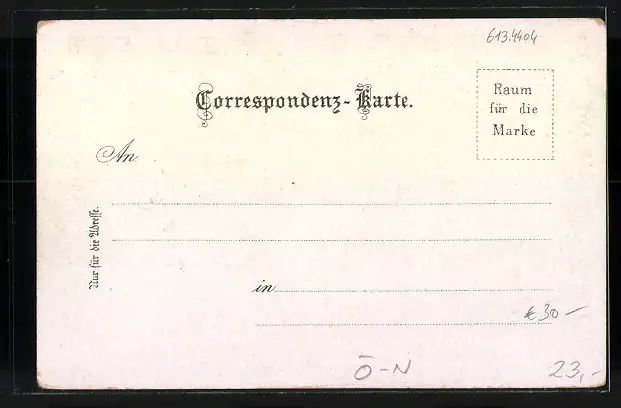 613.4404
Correspondenz-Karte.
Raum
für die
Marke
An
Nur für die Adresse.
in
€30-
Ō-N
23,-